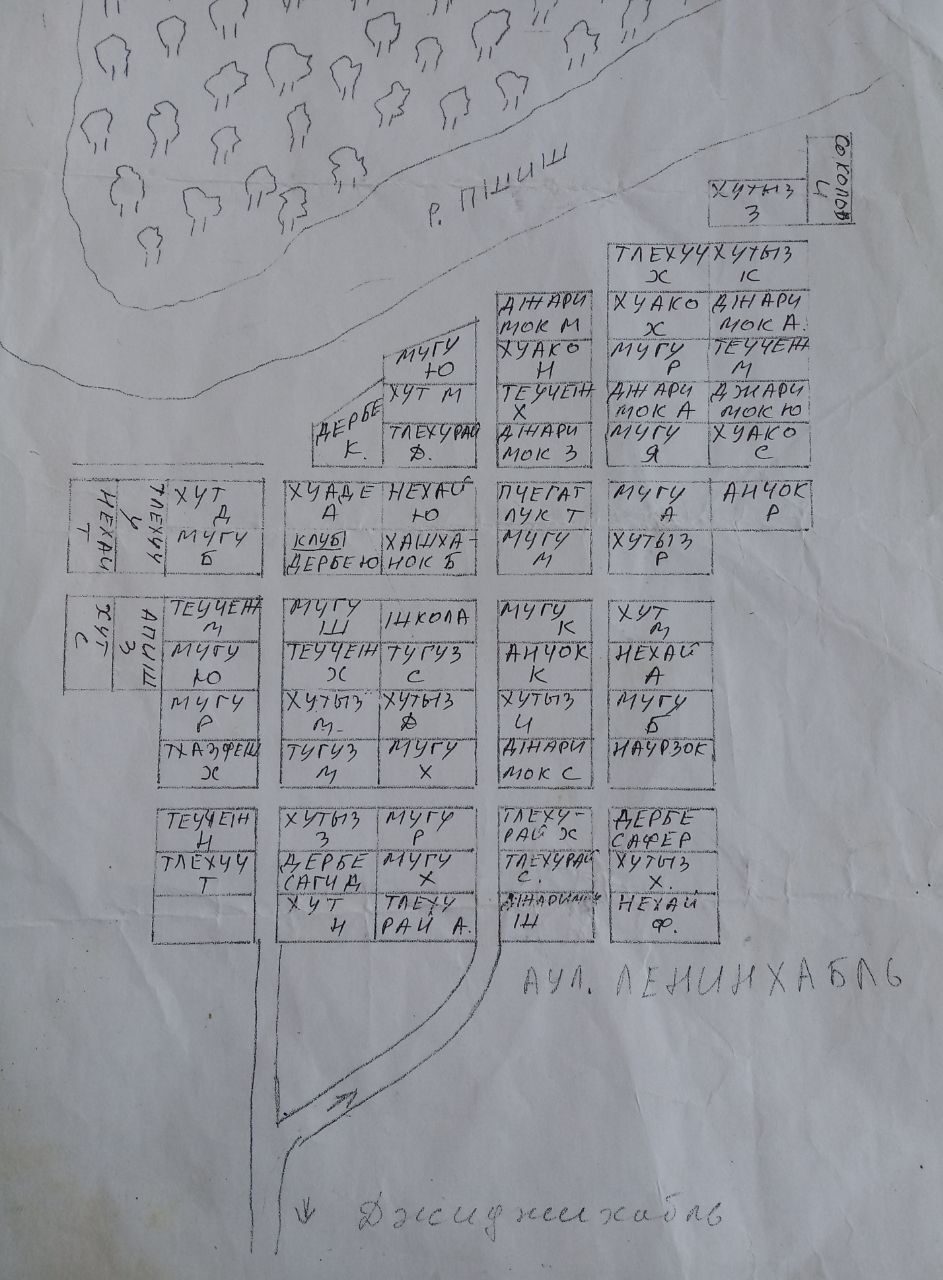 Р. ПШИШ
СОКОЛОВ
И
ХУТЫЗ
З
ТЛЕХУЧ
Х
ХУТЫЗ
К
ДЖАРИ
МОК М
ХУАКО
Х
ДЖАРИ
МОК А.
МУГУ
Ю
ХУАКО
Н
МУГУ
Р
ТЕУЧЕЖ
М
ХУТ М
ТЕУЧЕЖ
Х
ДЖАРИ
МОК А
ДЖАРИ
МОК Ю
ДЕРБЕ
К.
ТЛЕХУРАЙ
Д.
ДЖАРИ
МОК З
МУГУ
Я
ХУАКО
С
НЕХАЙ
Т
ТЛЕХУЧ
У
ХУТ
Д
ХУАДЕ
А
НЕХАЙ
Ю
ПЧЕГАТ
ЛУК Т
МУГУ
А
АНЧОК
Р
МУГУ
Б
КЛУБ
ДЕРБЕ Ю
ХАШХА-
НОК Б
МУГУ
М
ХУТЫЗ
Р
ХУТ
С
АПИШ
З
ТЕУЧЕЖ
М
МУГУ
Ш
ШКОЛА
МУГУ
К
ХУТ
М
МУГУ
Ю
ТЕУЧЕЖ
Х
ТУГУЗ
С
АНЧОК
К
НЕХАЙ
А
МУГУ
Р
ХУТЫЗ
М
ХУТЫЗ
Д
ХУТЫЗ
И
МУГУ
Б
ТХАЗФЕШ
Х
ТУГУЗ
М
МУГУ
Х
ДЖАРИ
МОК С
НАУРЗОК
ТЕУЧЕЖ
Н
ХУТЫЗ
З
МУГУ
Р
ТЛЕХУ-
РАЙ Х
ДЕРБЕ
САФЕР
ТЛЕХУЧ
Т
ДЕРБЕ
САГИД
МУГУ
Х
ТЛЕХУРАЙ
С.
ХУТЫЗ
Х.
ХУТ
Н
ТЛЕХУ
РАЙ А.
Ш
НЕХАЙ
Ф.
АУЛ. ЛЕНИНХАБЛЬ
Джиджихабль